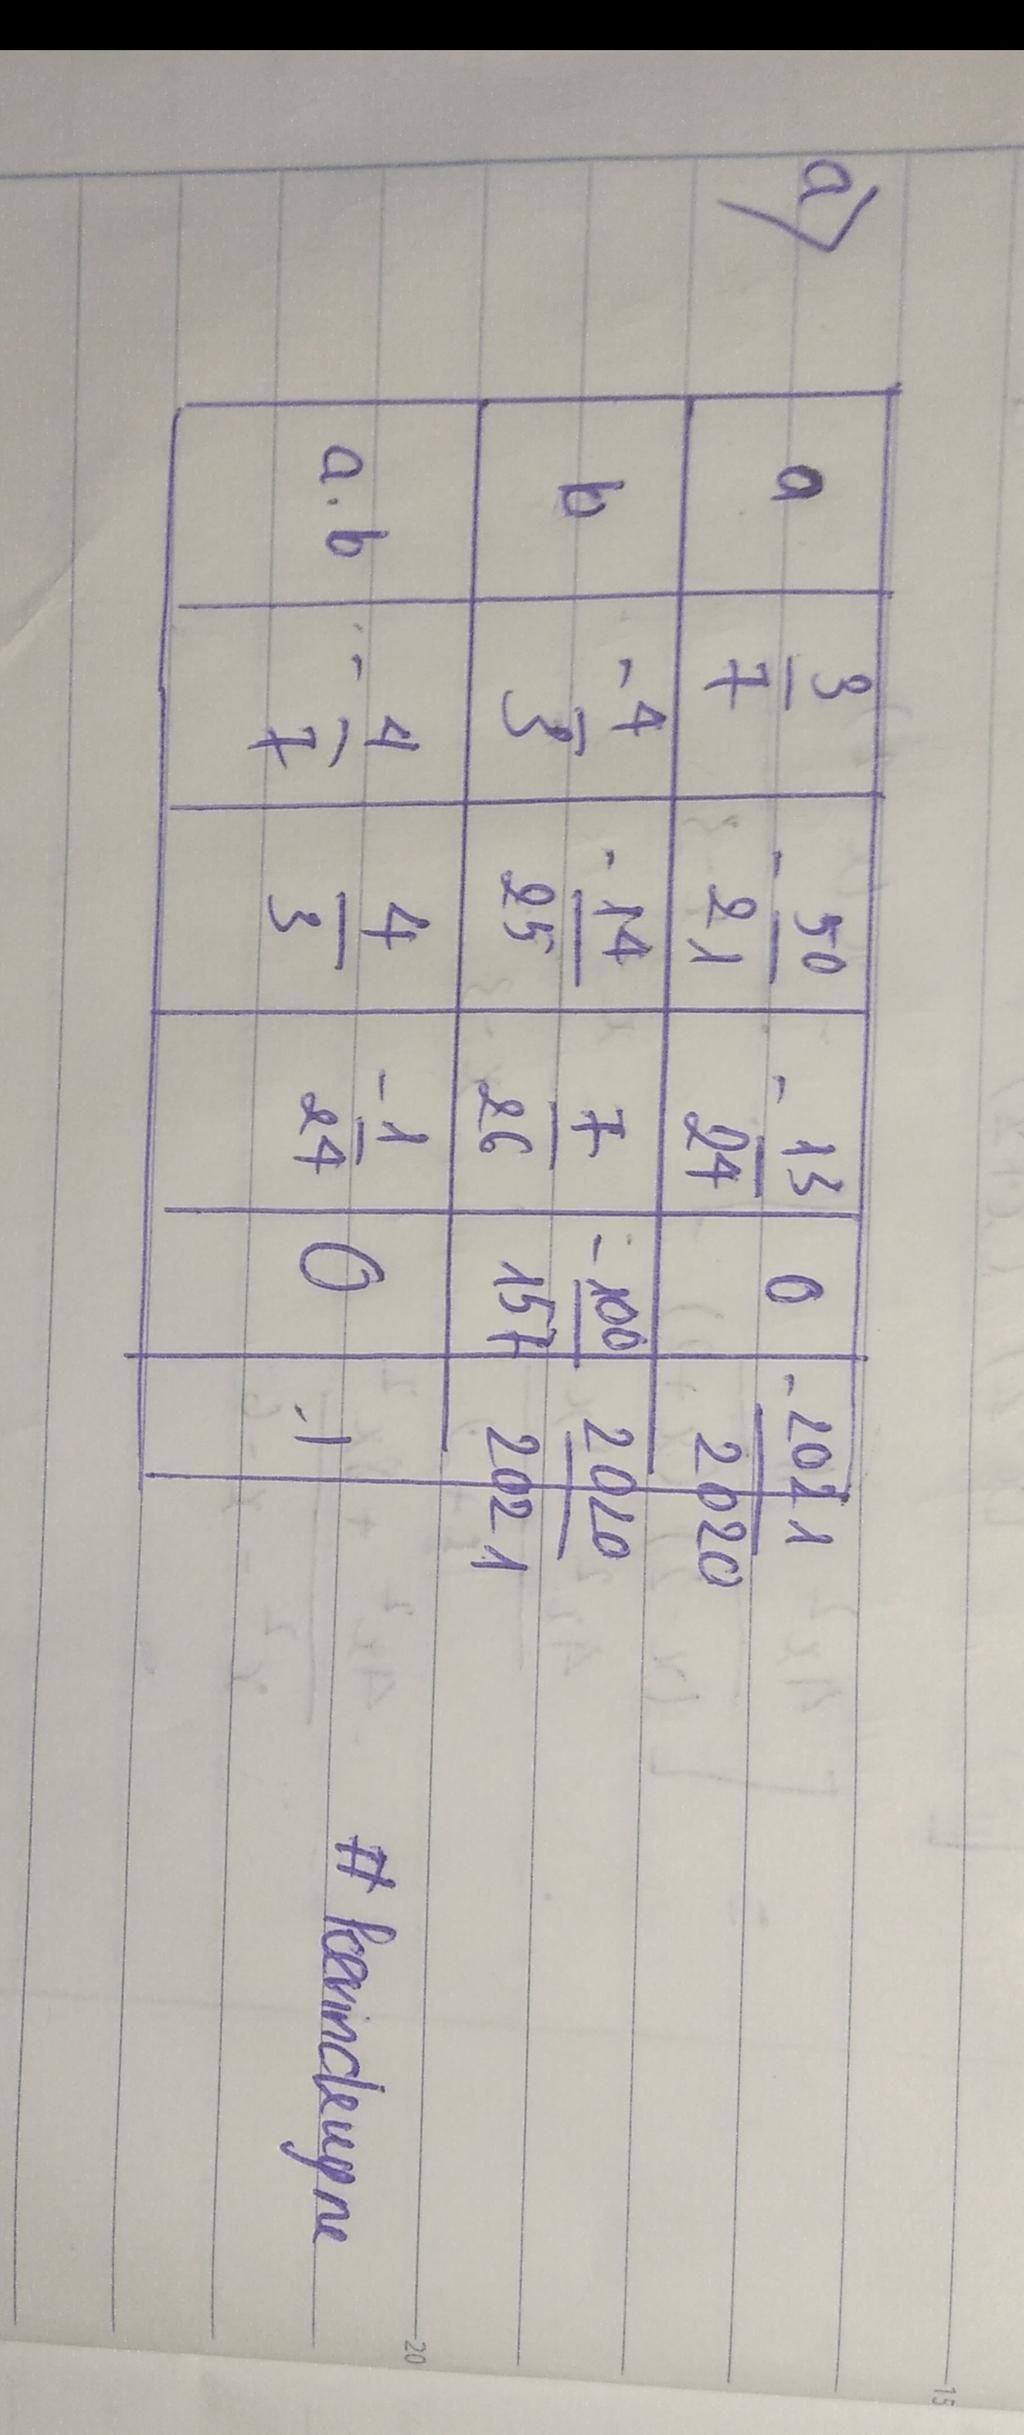 a)
a 3/7 -50/21 -13/24 0 -2021/2020
b -4/3 -14/25 7/26 -100/157 2020/2021
a.b -4/7 4/3 -1/24 0 -1
-15
-20